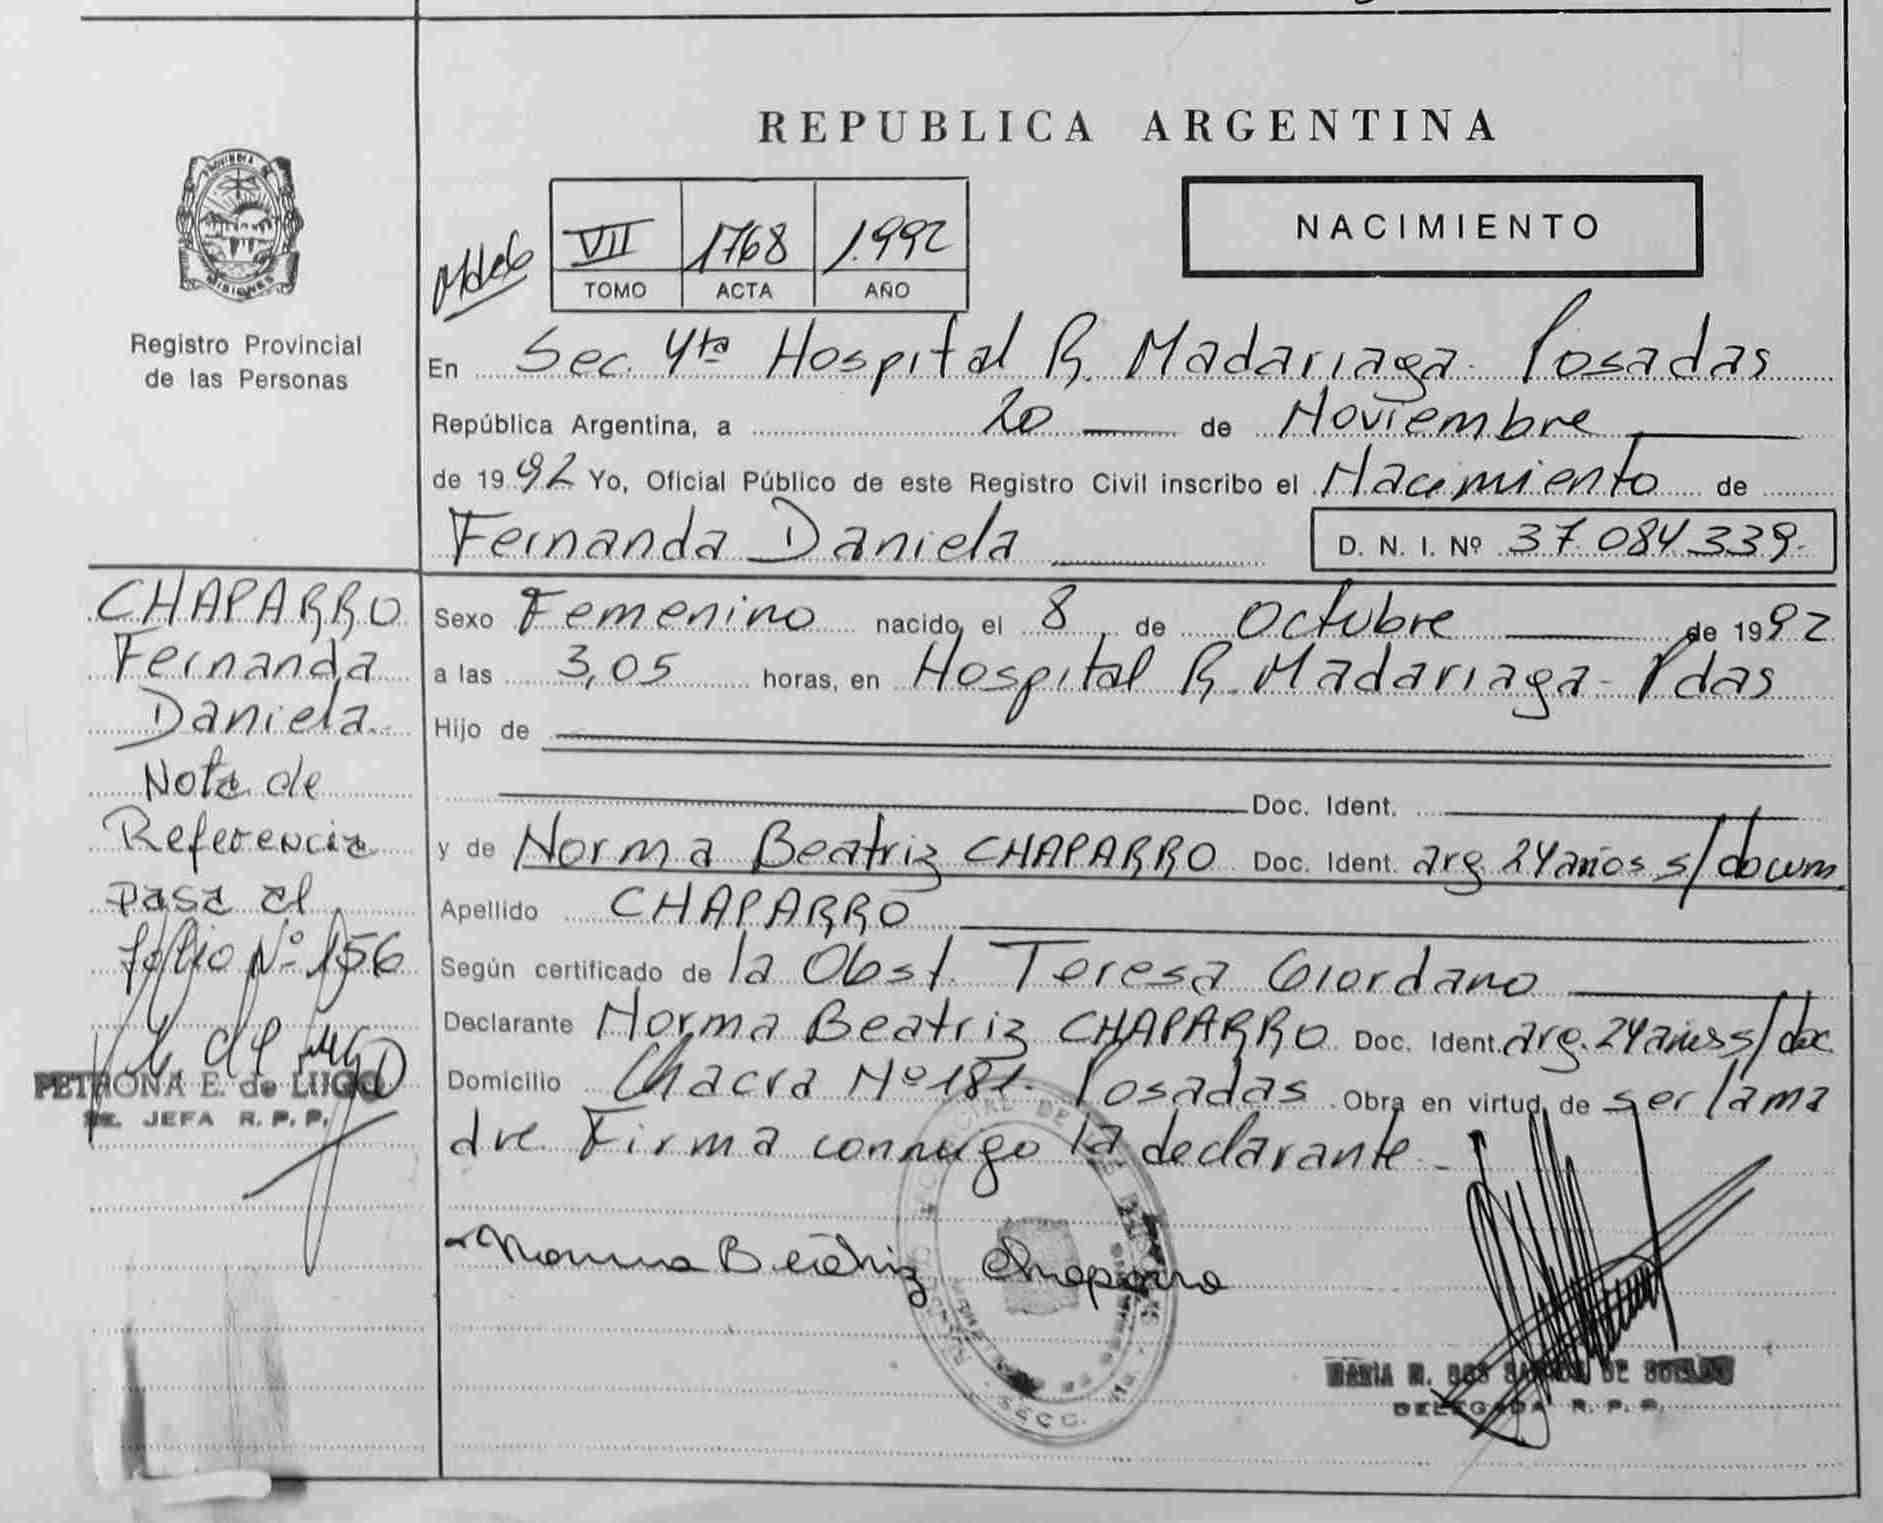 REPUBLICA ARGENTINA
NACIMIENTO
VII 1768 1.992
TOMO ACTA AÑO
PROVINCIA DE MISIONES
Registro Provincial
de las Personas
En Sec. 4ta Hospital R. Madariaga - Posadas
República Argentina, a 20 de Noviembre
de 1992 Yo, Oficial Público de este Registro Civil inscribo el Nacimiento de
Fernanda Daniela D. N. I. Nº 37.084.339-
CHAPARRO
Fernanda
Daniela.
Nota de
Referencia
pasa al
folio Nº 156
PETRONA E. de LUGO
JEFA R. P. P.
Sexo Femenino nacido el 8 de Octubre de 1992
a las 3,05 horas, en Hospital R. Madariaga - Pdas
Hijo de
Doc. Ident.
y de Norma Beatriz CHAPARRO Doc. Ident. arg. 24 años s/docum.
Apellido CHAPARRO
Según certificado de la Obst. Teresa Giordano
Declarante Norma Beatriz CHAPARRO Doc. Ident. arg. 24 años s/doc
Domicilio Chacra Nº 181. Posadas Obra en virtud de ser la ma
dre. Firma conmigo la declarante -
Norma Beatriz Chaparro
MARIA DOS SANTOS DE
DELEGADA R. P. P.
SECC.